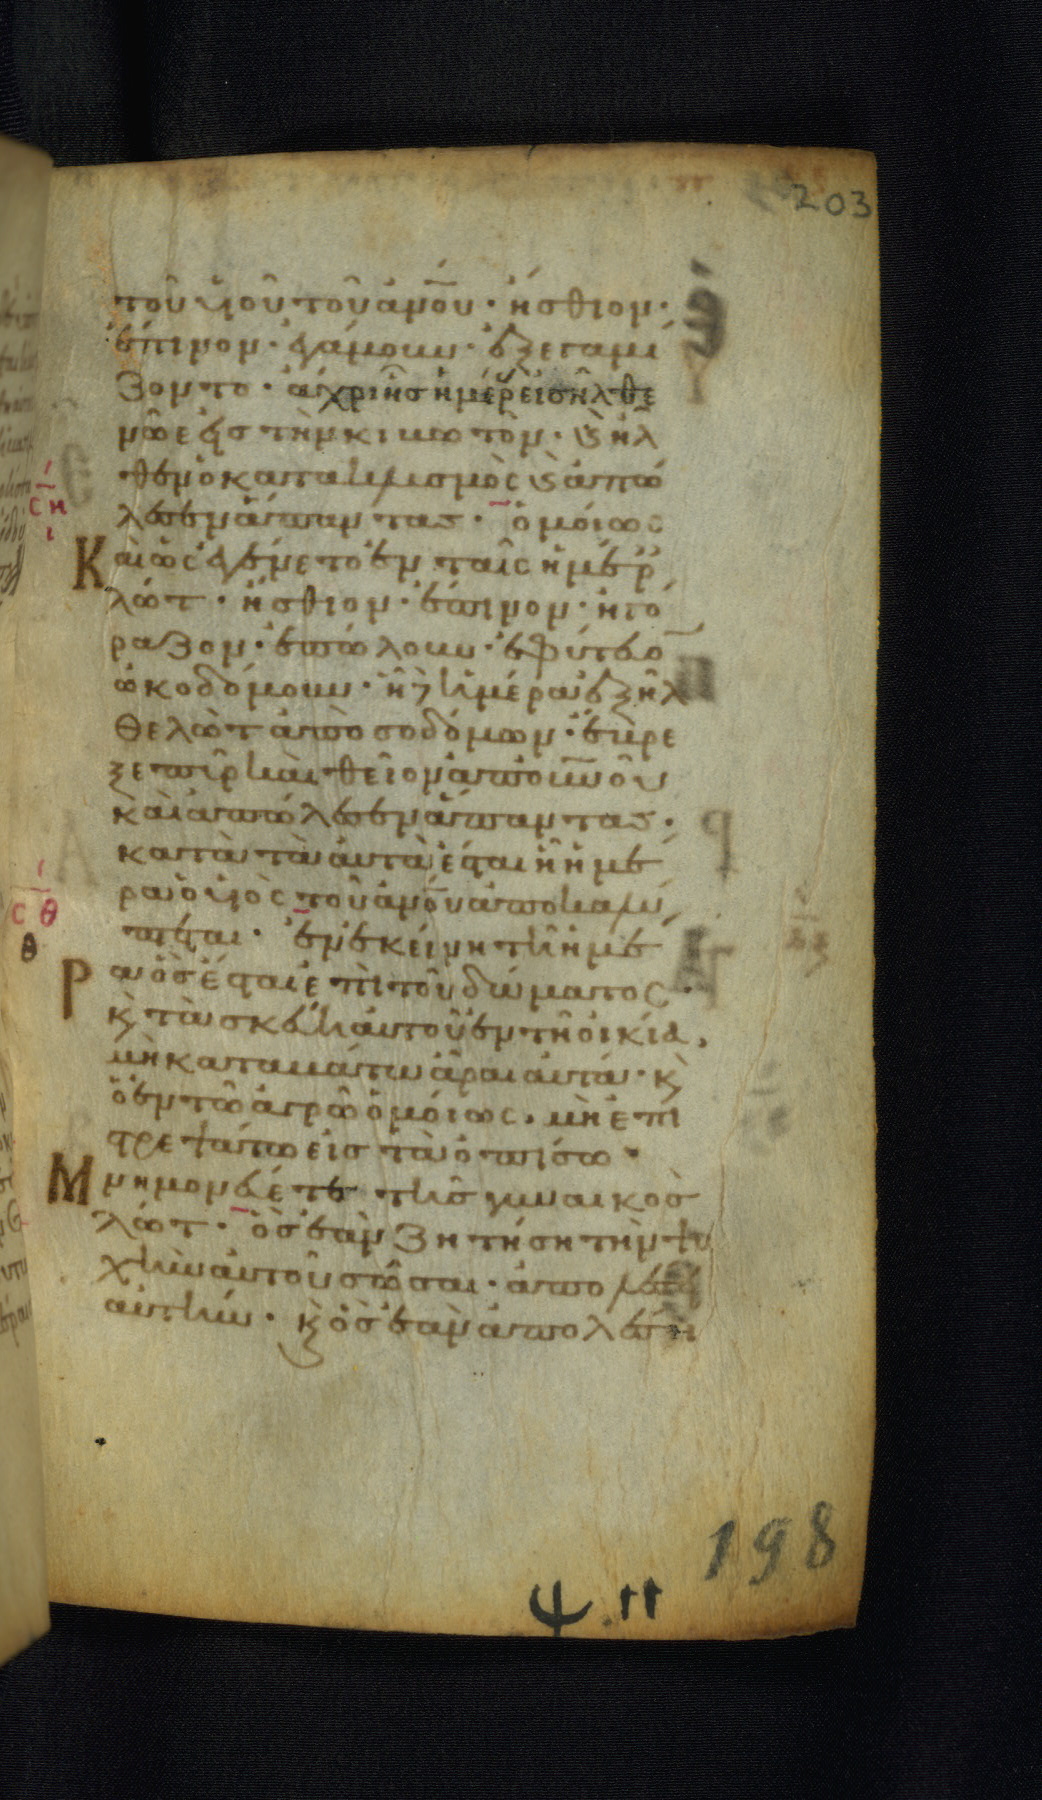 203
τοῦ υἱοῦ τοῦ ἀν̅ο̅υ · ἤσθιον ·
ἔπινον · ἐγάμουν · ἐξεγαμί
ζοντο · ἄχρι ἧς ἡμέρ εἰσῆλθε
νῶε εἰς τὴν κιβωτὸν · καὶ ἦλ
θεν ὁ κατακλυσμὸς καὶ ἀπώ
λεσεν ἅπαντας · ὁμοίως
Καὶ ὡς ἐγένετο ἐν ταῖς ἡμέρ
λώτ · ἤσθιον · ἔπινον · ἠγό
ραζον · ἐπώλουν · ἐφύτευο̅
ὠκοδόμουν · ἧ δὲ ἡμέρα ἐξῆλ
θε λὼτ ἀπὸ σοδόμων · ἔβρε
ξε πῦρ καὶ θεῖον ἀπ οὐν̅ο̅υ
καὶ ἀπώλεσεν ἅπαντας ·
κατὰ τὰ αὐτὰ ἔσται ἧ ἡμέ
ρα ὁ υἱὸς τοῦ ἀν̅ο̅υ ἀποκαλύ
πτεται · ἐν ἐκείνη τῆ ἡμέ
Ρα ὃς ἔσται ἐπὶ τοῦ δώματος ·
κ τὰ σκεύη αὐτοῦ ἐν τῆ οἰκία,
μὴ καταβάτω ἆραι αὐτά · κ
ὁ ἐν τῶ ἀγρῶ ὁμοίως, μὴ ἐπι
στρεψάτω εἰς τὰ ὀπίσω ·
Μνημονεύετε τῆς γυναικὸς
λώτ · ὃς ἐὰν ζητήση τὴν ψυ
χὴν αὐτοῦ σῶσαι · ἀπολέσει
αὐτήν · κ ὃς ἐὰν ἀπολέση
198
Ψ. 11